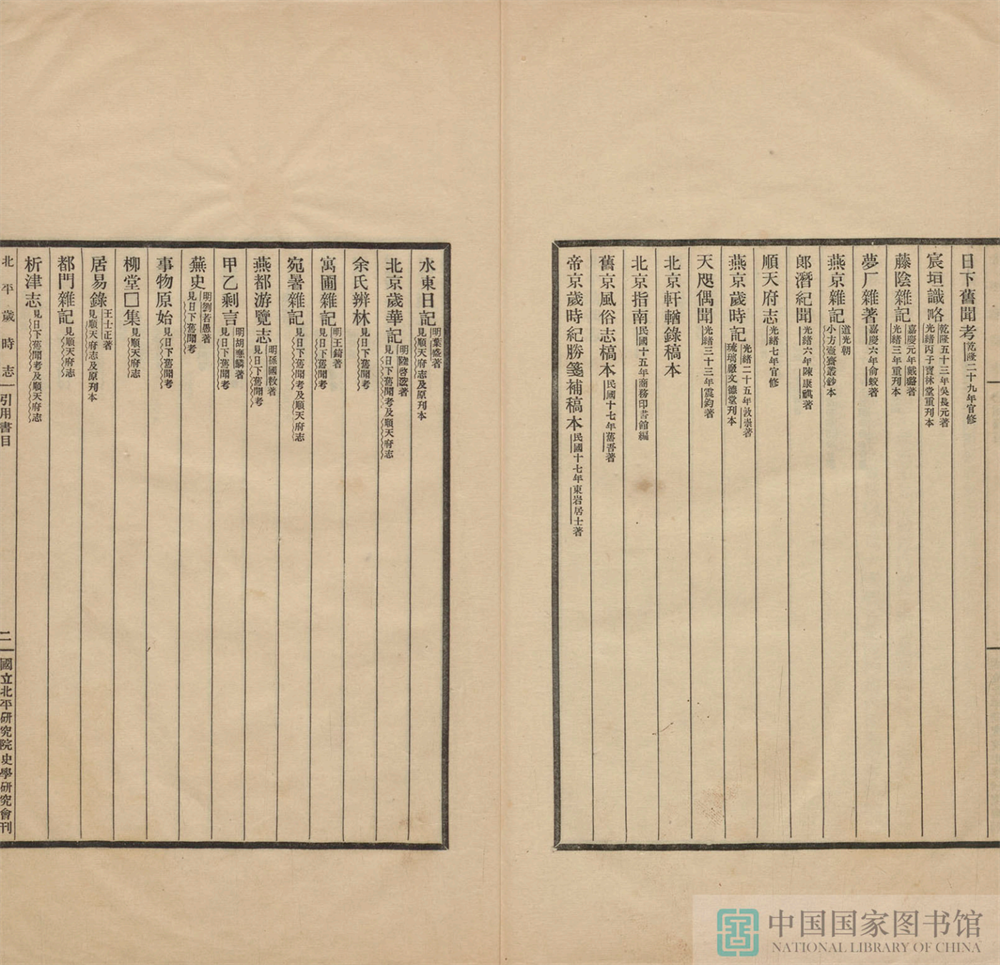 日下舊聞考 乾隆二十九年官修
宸垣識略 乾隆五十三年吳長元著 光緒丙子寶林堂重刊本
藤陰雜記 嘉慶元年戴璐著 光緒三年重刊本
夢厂雜著 嘉慶六年俞蛟著
燕京雜記 道光朝 小方壺齋叢鈔本
郎潛紀聞 光緒六年陳康祺著
順天府志 光緒七年官修
燕京歲時記 光緒二十五年敦崇著 琉璃廠文德堂刊本
天咫偶聞 光緒三十三年震鈞著
北京軒輶錄稿本
北京指南 民國十五年商務印書館編
舊京風俗志稿本 民國十七年著
帝京歲時紀勝箋補稿本 民國十七年東岩居士著
水東日記 明葉盛著 見順天府志及原刊本
北京歲華記 明陸啓浤著 見日下舊聞考及順天府志
余氏辨林 見日下舊聞考
寓圃雜記 明王錡著 見日下舊聞考
宛署雜記 見日下舊聞考及順天府志
燕都游覽志 明孫國敉著 見日下舊聞考
甲乙剩言 明胡應麟著 見日下舊聞考
蕪史 明劉若愚著 見日下舊聞考
事物原始 見日下舊聞考
柳堂□集 見順天府志
居易錄 王士正著 見順天府志及原刊本
都門雜記 見順天府志
析津志 見日下舊聞考及順天府志
北平歲時志 引用書目 二 國立北平研究院史學研究會刊
中国国家图书馆
NATIONAL LIBRARY OF CHINA